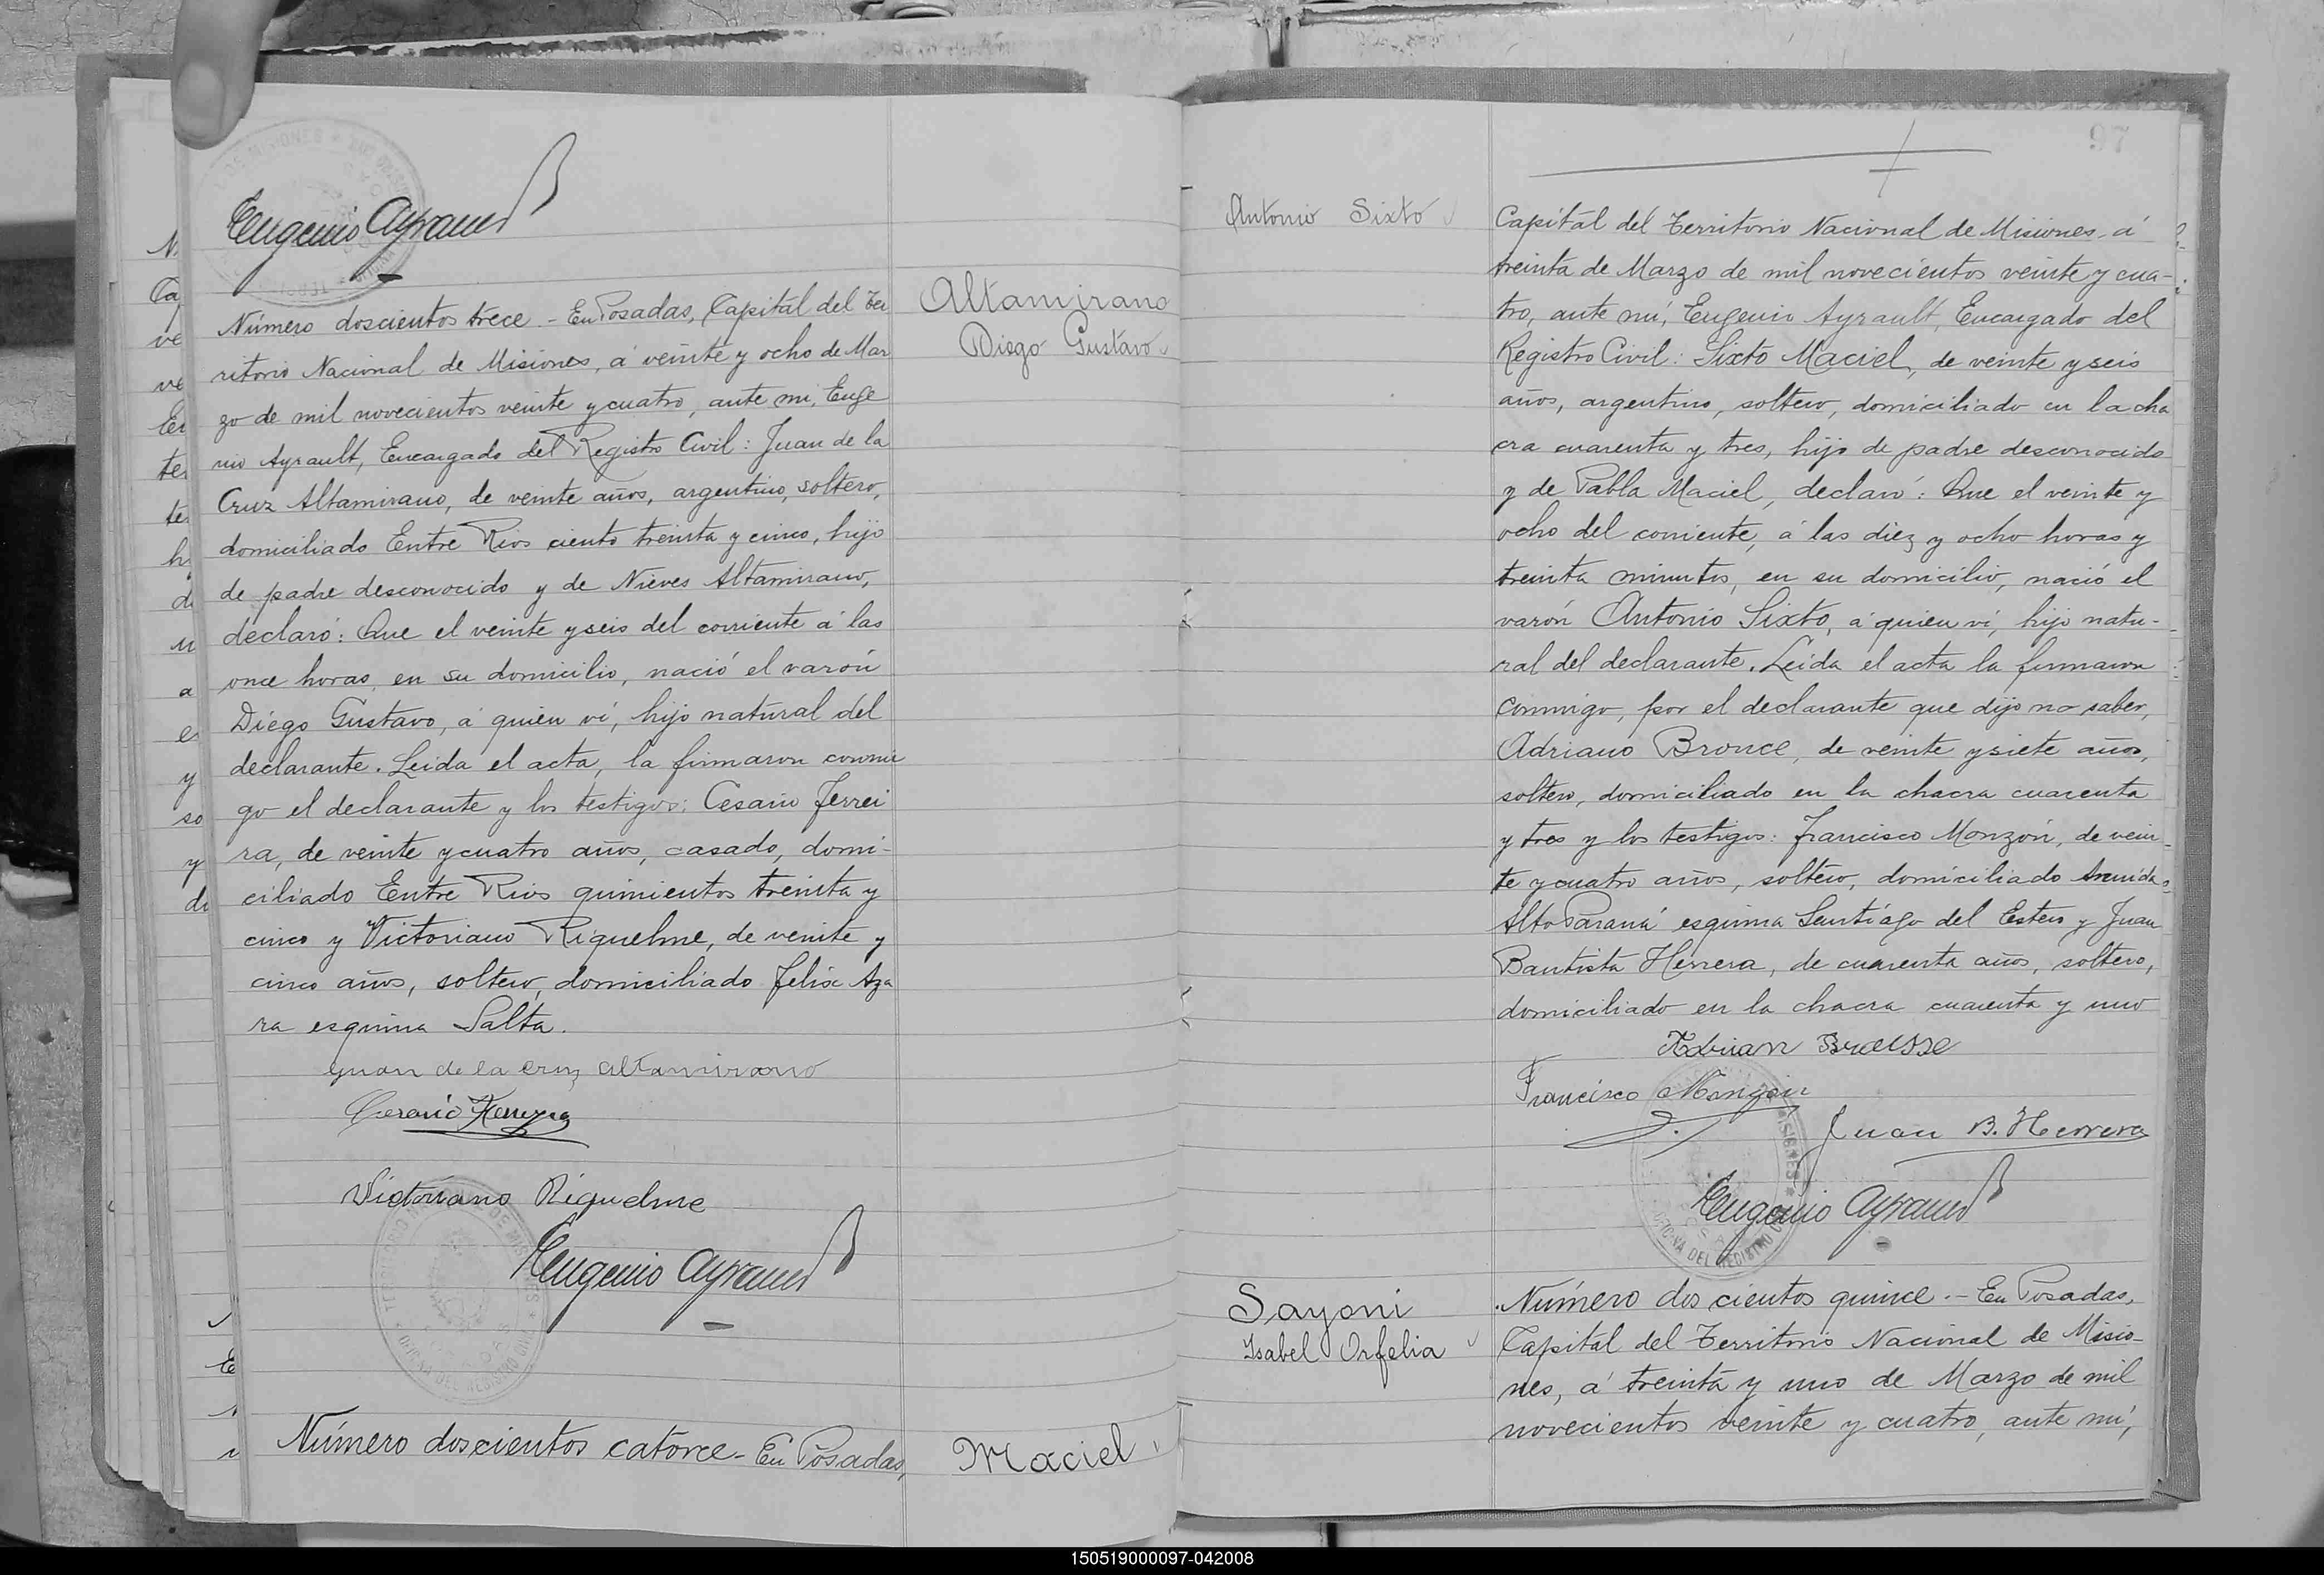 Eugenio Ayrault
Número doscientos trece.- En Posadas, Capital del Ter
ritorio Nacional de Misiones, á veinte y ocho de Mar
zo de mil novecientos veinte y cuatro, ante mi, Euge
nio Ayrault, Encargado del Registro Civil: Juan de la
Cruz Altamirano, de veinte años, argentino, soltero,
domiciliado Entre Rios ciento treinta y cinco, hijo
de padre desconocido y de Nieves Altamirano,
declaró: Que el veinte y seis del corriente á las
once horas, en su domicilio, nació el varón
Diego Gustavo, á quien ví, hijo natural del
declarante. Leida el acta, la firmaron conmi
go el declarante y los testigos: Cesario Ferrei
ra, de veinte y cuatro años, casado, domi-
ciliado Entre Rios quinientos treinta y
cinco y Victoriano Riquelme, de veinte y
cinco años, soltero, domiciliado Felix Aza
ra esquina Salta.
Juan de la Cruz Altamirano
Cesario
Victoriano Riquelme
Eugenio Ayrault
Altamirano
Diego Gustavo
Número doscientos catorce- En Posadas,
Maciel
97
Antonio Sixto
Capital del Territorio Nacional de Misiones, á
treinta de Marzo de mil novecientos veinte y cua-
tro, ante mí, Eugenio Ayrault, Encargado del
Registro Civil: Sixto Maciel, de veinte y seis
años, argentino, soltero, domiciliado en la cha
cra cuarenta y tres, hijo de padre desconocido
y de Pabla Maciel, declaró: Que el veinte y
ocho del corriente, á las diez y ocho horas y
treinta minutos, en su domicilio, nació el
varón Antonio Sixto, á quien ví, hijo natu-
ral del declarante. Leida el acta la firmaron
conmigo, por el declarante que dijo no saber,
Adriano Bronce, de veinte y siete años,
soltero, domiciliado en la chacra cuarenta
y tres y los testigos: Francisco Monzón, de vein-
te y cuatro años, soltero, domiciliado Avenida
Alto Paraná esquina Santiago del Estero y Juan
Bautista Herrera, de cuarenta años, soltero,
domiciliado en la chacra cuarenta y uno
Adrian
Francisco Monzón
Juan B. Herrera
Eugenio Ayrault
Sayoni
Isabel Orfelia
Número dos cientos quince.- En Posadas,
Capital del Territorio Nacional de Misio-
nes, á treinta y uno de Marzo de mil
novecientos veinte y cuatro, ante mí,
150519000097-042008